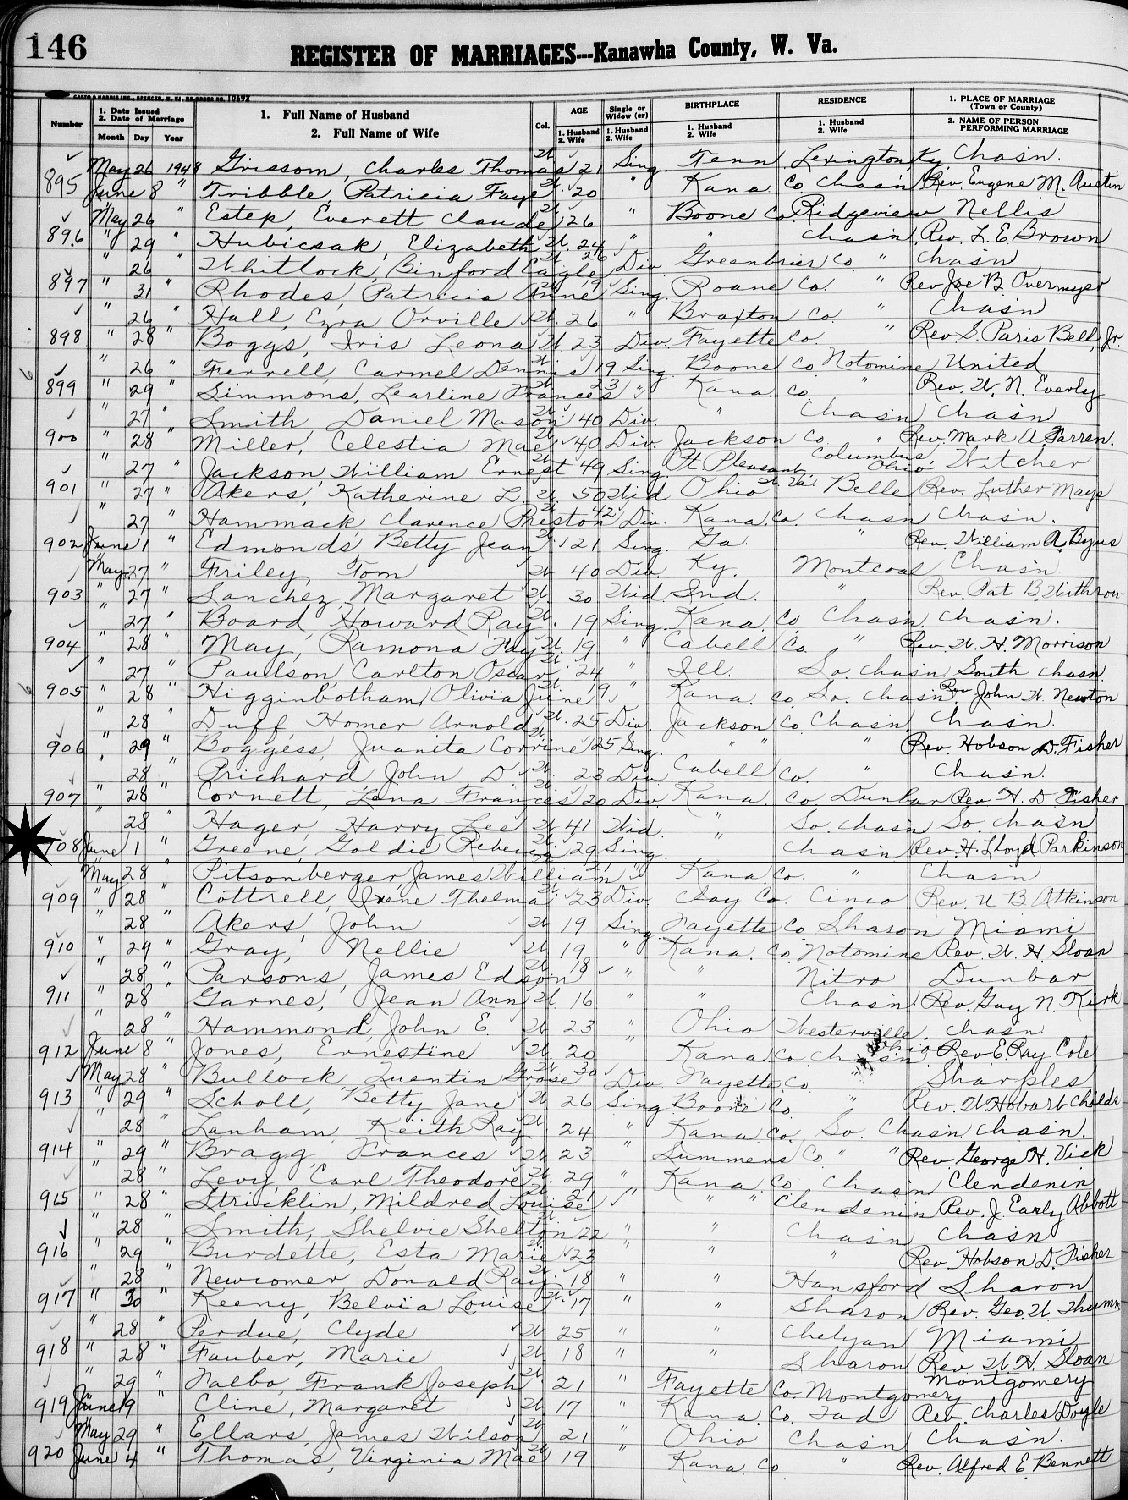 146
REGISTER OF MARRIAGES---Kanawha County, W. Va.
Number 1. Date Issued 2. Date of Marriage Month Day Year 1. Full Name of Husband 2. Full Name of Wife Col. AGE 1. Husband 2. Wife Single or Widow (er) 1. Husband 2. Wife BIRTHPLACE 1. Husband 2. Wife RESIDENCE 1. Husband 2. Wife 1. PLACE OF MARRIAGE (Town or County) 2. NAME OF PERSON PERFORMING MARRIAGE
895 May 26 1948 Grissom, Charles Thomas W 21 Sing Tenn Lexington Ky Chasn.
June 8 " Tribble Patricia Faye W 20 " Kana Co Chasn Rev. Eugene M. Austin
896 May 26 " Estep, Everett Claude W 26 " Boone Co. Ridgeview Nellis
" 29 " Hubicsak, Elizabeth W. 24 " " Chasn. Rev. L. E. Brown
897 " 26 " Whitlock, Binford Eagle W 26 Div. Greenbrier Co " Chasn
" 31 " Rhodes, Patricia Anne W 19 Sing. Roane Co. " Rev Joe B. Overmyer
898 " 26 " Hall, Ezra Orville W. 26 " Braxton Co. " Chasn
" 28 " Boggs, Iris Leona W 23 Div Fayette Co. " Rev S. Paris Bell, Jr.
899 " 26 " Ferrell, Carmel Dennis W 19 Sing. Boone Co Notomine United
" 29 " Simmons, Learline Frances W 23 " Kana Co " Rev. W. N. Everly
900 " 27 " Smith, Daniel Mason W 40 Div. " Chasn Chasn
" 28 " Miller, Celestia Mae W 40 Div Jackson Co. " Rev. Mark A Farren.
901 " 27 " Jackson, William Ernest W 49 Sing. Pt Pleasant W. Va. Columbus, Ohio Witcher
" 27 " Akers, Katherine L. W. 50 Wid Ohio Belle Rev. Luther Mays
902 " 27 " Hammack Clarence Preston W 42 Div. Kana. Co Chasn Chasn.
June 1 " Edmonds Betty Jean W 21 Sing. Ga. " Rev. William A. Byus
903 May 27 " Friley, Tom W 40 Div Ky. Montcoal Chasn
" 27 " Sanchez, Margaret W 30 Wid. Ind. " Rev. Pat B. Withrow
904 " 27 " Board Howard Ray W. 19 Sing. Kana Co Chasn Chasn.
" 28 " May, Ramona Fay W. 19 " Cabell Co. " Rev. W. H. Morrison
905 " 27 " Paulson, Carlton Oscar W. 24 " Ill. So. Chasn South Chasn.
" 28 " Higginbotham, Olivia June W 19 " Kana. Co. So. Chasn Rev John W Newton
906 " 28 " Duff, Homer Arnold W. 25 Div Jackson Co. Chasn Chasn.
" 29 " Boggess, Juanita Corrine W. 25 Sing. " " Rev. Hobson D. Fisher
907 " 28 " Prichard John D W 23 Div Cabell Co. " Chasn.
" 28 " Cornett, Lena Frances W 20 Div. Kana. Co. Dunbar Rev. H. D Fisher
908 " 28 " Hager, Harry Lee W 41 Wid. " So. Chasn So. Chasn
June 1 " Greene, Goldie Rebecca W 29 Sing. " Chasn Rev. H. Lloyd Parkinson
909 May 28 " Pitsonberger James William " Kana Co. " Chasn
" 28 " Cottrell, Irene Thelma W. 23 Div. Clay Co. Cinco Rev. U. B. Atkinson
910 " 28 " Akers John W 19 Sing Fayette Co Sharon Miami
" 29 " Gray, Nellie W 19 " Kana. Co. Notomine Rev. W. H. Sloan
911 " 28 " Parsons, James Edson W 18 " " Nitro Dunbar
" 28 " Garnes, Jean Ann W. 16 " " Chasn Rev. Guy N. Kirk
912 " 28 " Hammond, John E. W 23 " Ohio Westerville, Ohio Chasn
June 8 " Jones, Ernestine W 20 " Kana Co Chasn Rev. E. Ray Cole
913 May 28 " Bullock, Quentin W 30 Div. Fayette Co " Sharples
" 29 " Scholl, Betty Jane W 26 Sing Boone Co. " Rev. W. Hobart Childs
914 " 28 " Lanham, Keith Ray W 24 " Kana Co. So. Chasn Chasn.
" 29 " Bragg Frances W 23 " Summers Co. " " Rev. George H. Vick
915 " 28 " Levy, Earl Theodore W 29 " Kana. Co. Chasn Clendenin
" 28 " Stricklin, Mildred Louise W 21 " " " Clendenin Rev. J. Early Abbott
916 " 28 " Smith, Shelvie Shelton W 22 " " Chasn Chasn
" 29 " Burdette, Esta Marie W 23 " " " Rev. Hobson D. Fisher
917 " 28 " Newcomer, Donald Ray W 18 " " Hansford Sharon
" 30 " Keeny, Belvia Louise W. 17 " " Sharon Rev. Geo. W.
918 " 28 " Perdue, Clyde W 25 " " Chelyan Miami
" 28 " Fauber, Marie W 18 " " Sharon Rev W. H. Sloan
919 " 29 " Falbo, Frank Joseph W 21 " Fayette Co. Montgomery Montgomery
June 19 " Cline, Margaret W 17 " Kana. Co. Tad Rev. Charles Doyle
920 May 29 " Ellars, James Wilson W 21 " Ohio Chasn Chasn.
June 4 " Thomas, Virginia Mae W 19 " Kana Co " Rev. Alfred E. Bennett